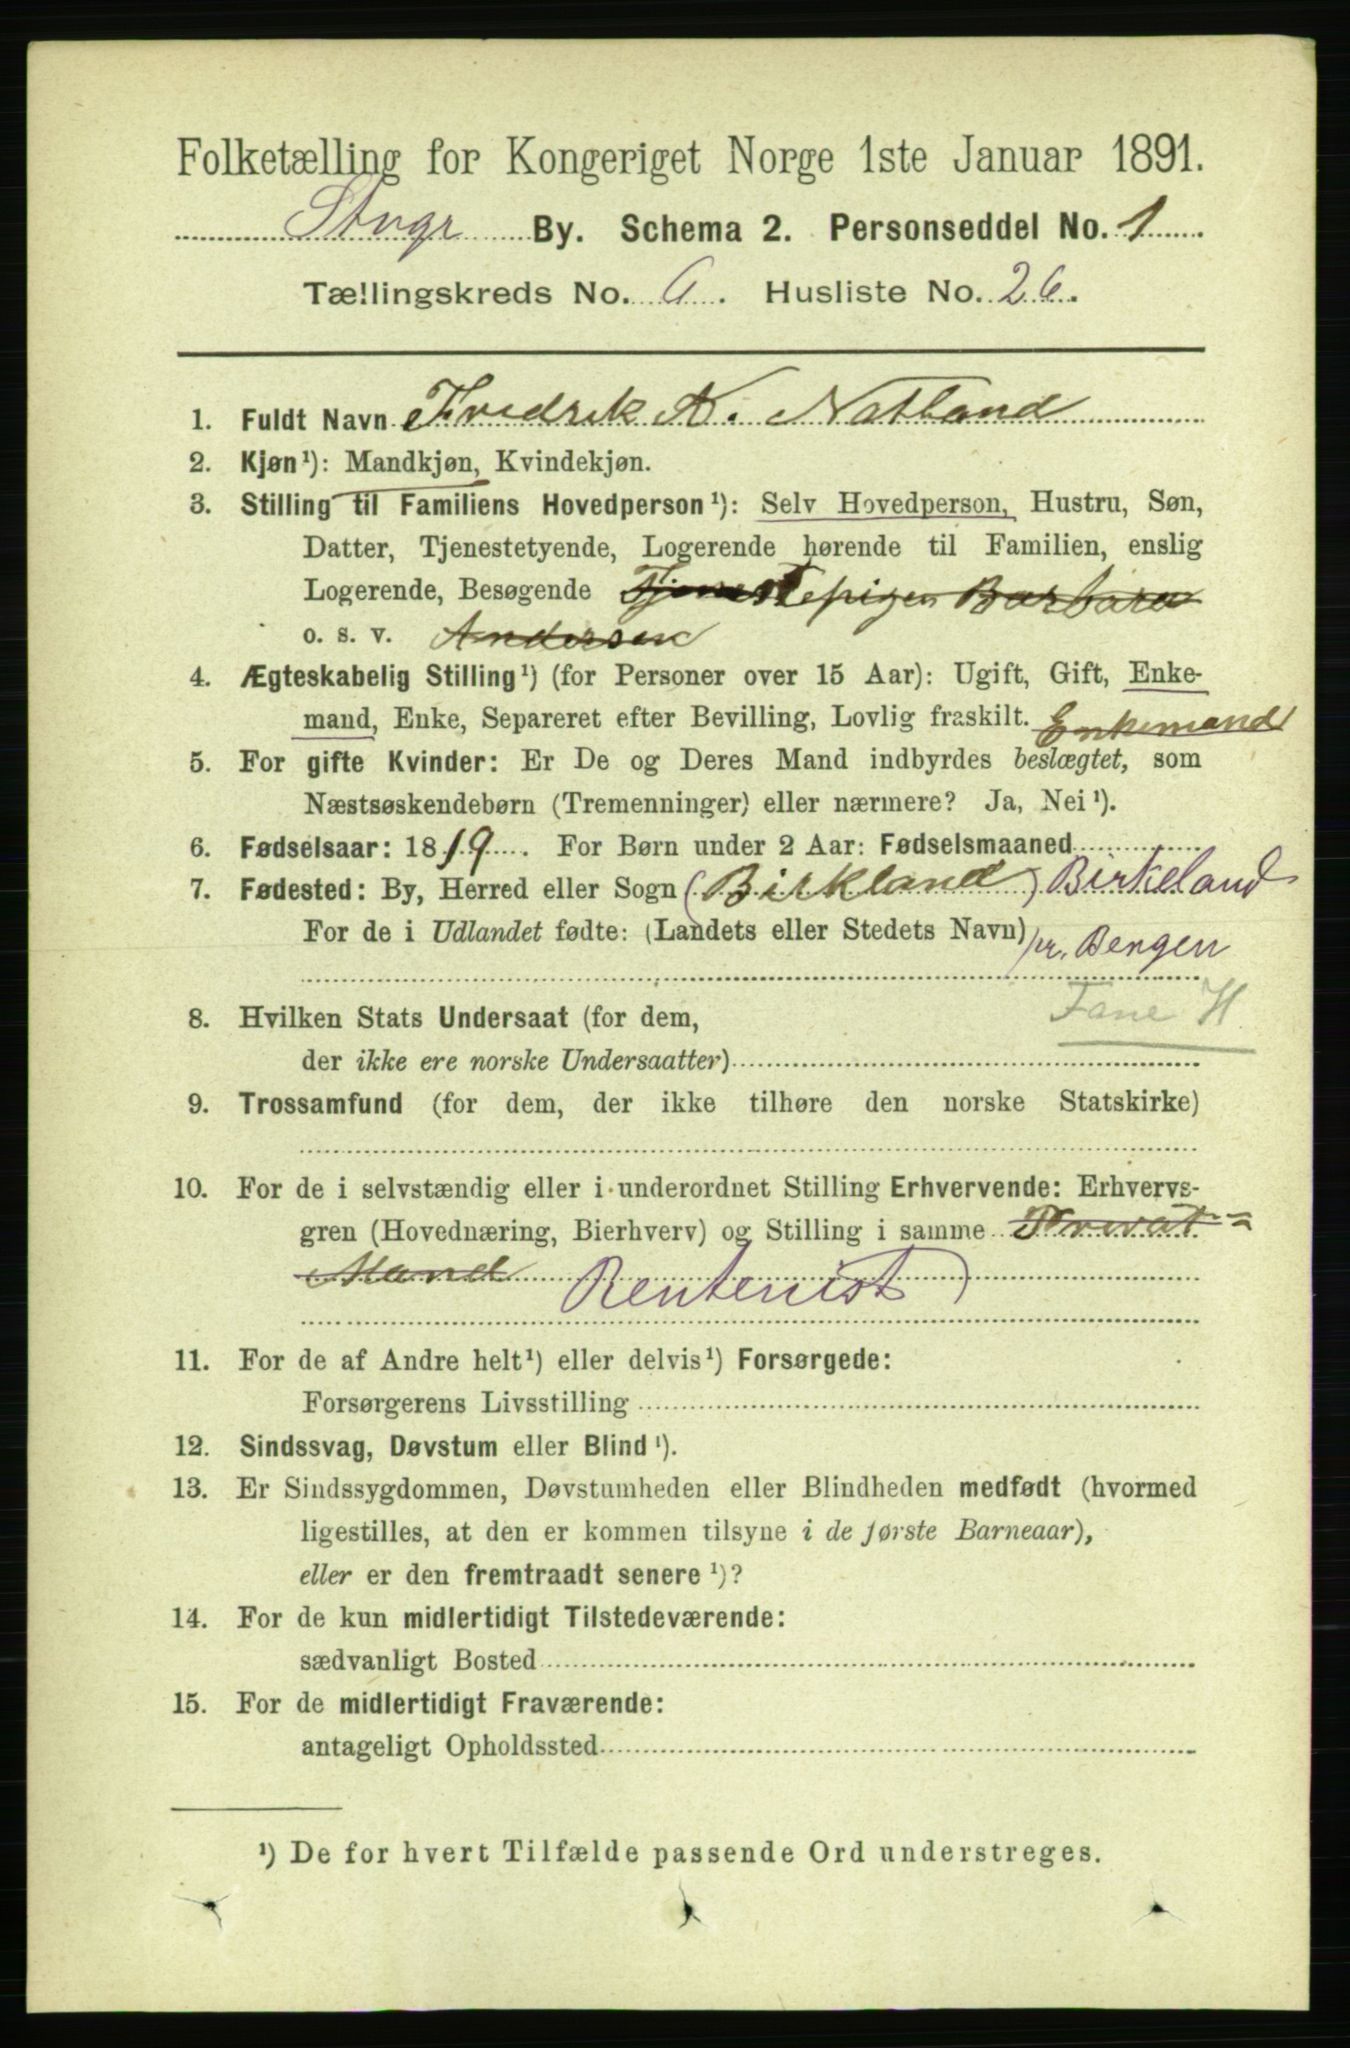 Folketælling for Kongeriget Norge 1ste Januar 1891.
Stvgr By. Schema 2. Personseddel No. 1
Tællingskreds No. 6. Husliste No. 26.
1. Fuldt Navn Fredrik A. Natland
2. Kjøn¹): Mandkjøn, Kvindekjøn.
3. Stilling til Familiens Hovedperson¹): Selv Hovedperson, Hustru, Søn,
Datter, Tjenestetyende, Logerende hørende til Familien, enslig
Logerende, Besøgende Tjenestepigen Barbara
o. s. v. Andersen
4. Ægteskabelig Stilling¹) (for Personer over 15 Aar): Ugift, Gift, Enke-
mand, Enke, Separeret efter Bevilling, Lovlig fraskilt. Enkemand
5. For gifte Kvinder: Er De og Deres Mand indbyrdes beslægtet, som
Næstsøskendebørn (Tremenninger) eller nærmere? Ja, Nei¹).
6. Fødselsaar: 1819. For Børn under 2 Aar: Fødselsmaaned
7. Fødested: By, Herred eller Sogn (Birkland) Birkeland
For de i Udlandet fødte: (Landets eller Stedets Navn) pr. Bergen
Fane H
8. Hvilken Stats Undersaat (for dem,
der ikke ere norske Undersaatter)
9. Trossamfund (for dem, der ikke tilhøre den norske Statskirke)
10. For de i selvstændig eller i underordnet Stilling Erhvervende: Erhvervs-
gren (Hovednæring, Bierhverv) og Stilling i samme Privat=
Mand Rentenist)
11. For de af Andre helt¹) eller delvis¹) Forsørgede:
Forsørgerens Livsstilling
12. Sindssvag, Døvstum eller Blind¹).
13. Er Sindssygdommen, Døvstumheden eller Blindheden medfødt (hvormed
ligestilles, at den er kommen tilsyne i de første Barneaar),
eller er den fremtraadt senere¹)?
14. For de kun midlertidigt Tilstedeværende:
sædvanligt Bosted
15. For de midlertidigt Fraværende:
antageligt Opholdssted
¹) De for hvert Tilfælde passende Ord understreges.